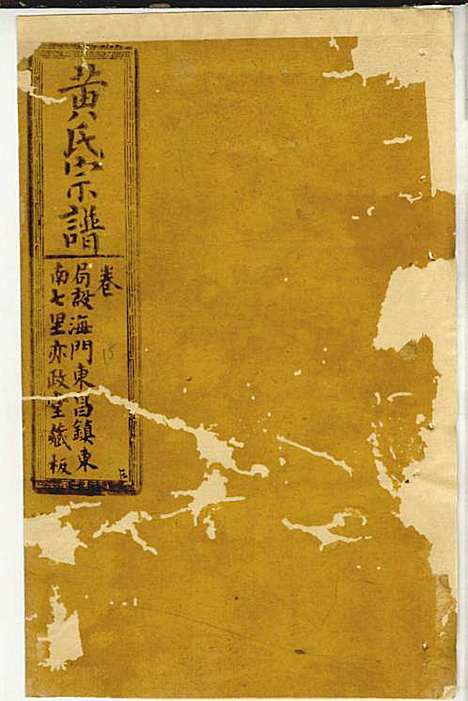 黄氏宗譜
卷
局設海門東昌鎮東
南七里亦政堂藏板
15